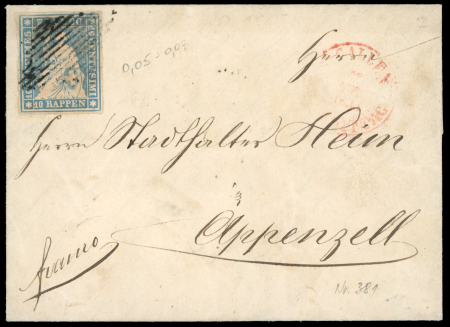 CENTIMES
CENTESIMI
10 RAPPEN
0,05-0,07
Herrn
Herrn Stadthalter Heim
à
Appenzell
franco
Nr. 381